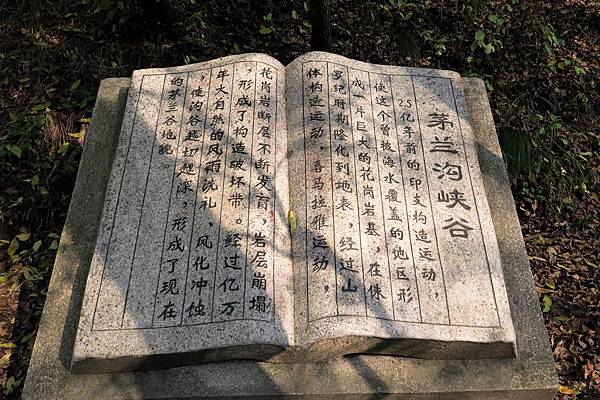 茅兰沟峡谷
2.5亿年前的印支构造运动，
使这个曾被海水覆盖的地区形
成一年巨大的花岗岩基，在侏
罗纪时期隆化到地表，经过山
体构造运动，喜马拉雅运动，
花岗岩断层不断发育，岩层崩塌
，形成了构造破坏带。经过亿万
年大自然的风雨洗礼、风化冲蚀
，使沟谷越切越深，形成了现在
的茅兰谷地貌